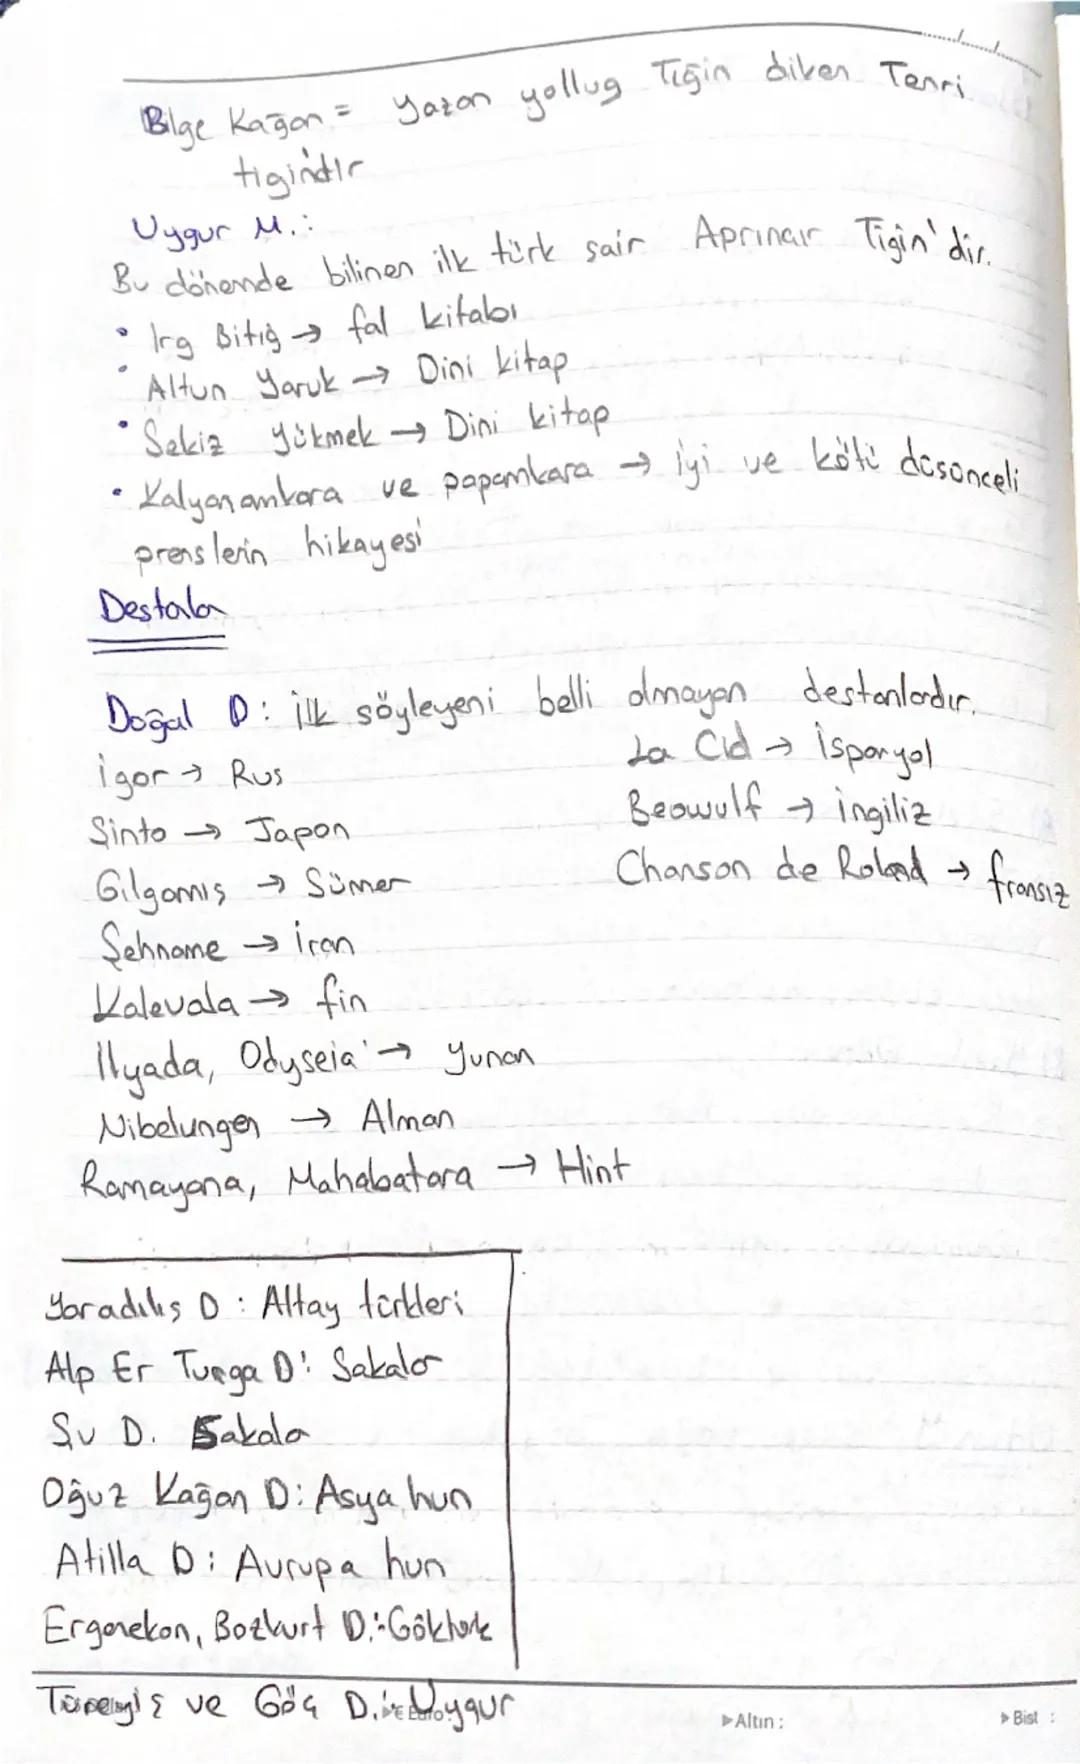 Bilge Kağan = Yazan yollug Tiğin diken Tenri
tigindir
Uygur M. :
Bu dönemde bilinen ilk türk şair Aprınçır Tigin'dir.
• Irg Bitiğ → fal kitabı
• Altun Yaruk → Dini kitap
• Sekiz Yükmek → Dini kitap
• Kalyanamkara ve papamkara → iyi ve kötü düşünceli
prenslerin hikayesi
Destanlar
Doğal D : ilk söyleyeni belli olmayan destanlardır.
İgor → Rus
La Cid → İspanyol
Şinto → Japon
Beowulf → İngiliz
Gılgamış → Sümer
Chanson de Roland → fransız
Şehname → İran
Kalevala → fin
İlyada, Odyseia → yunan
Nibelungen → Alman
Ramayana, Mahabatara → Hint
Yaradılış D : Altay türkleri
Alp Er Tunga D : Sakalar
Şu D. Sakala
Oğuz Kağan D : Asya hun
Atilla D : Avrupa hun
Ergenekon, Bozkurt D. : Göktürk
Türeyiş ve Göç D. : Uygur
▶Altın :
▶Bist :